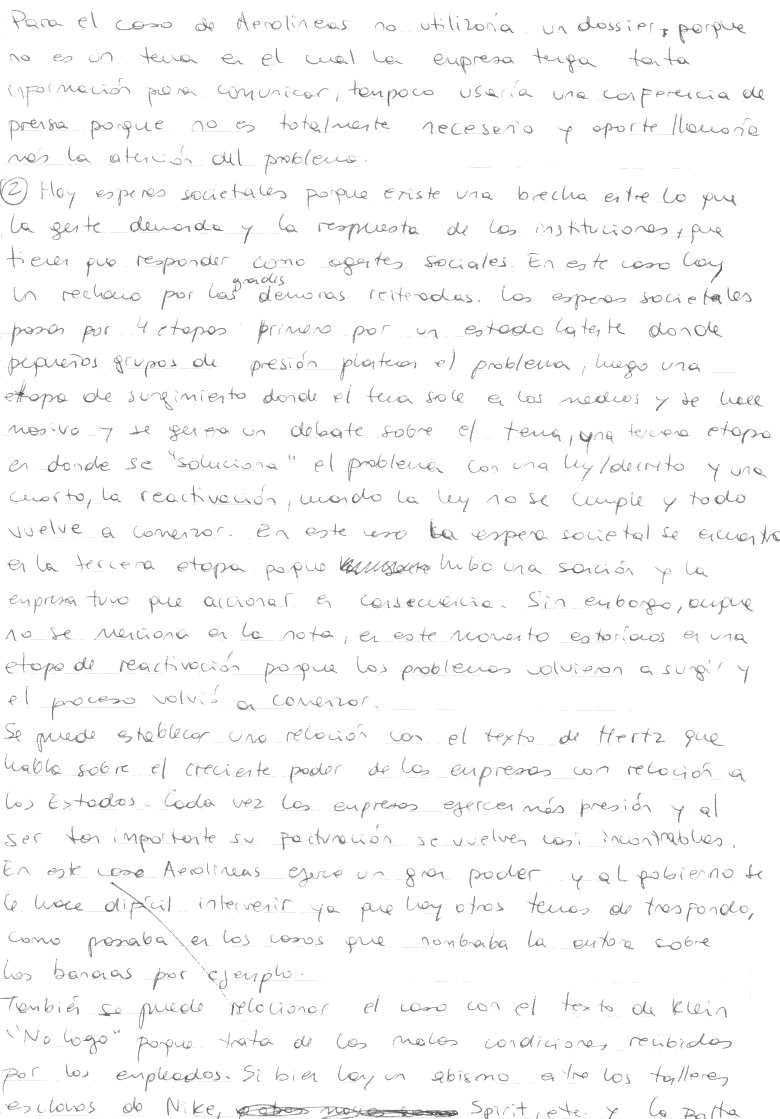 Para el caso de Aerolíneas no utilizaría un dossier, porque
no es un tema en el cual la empresa tenga tanta
información para comunicar, tampoco usaría una conferencia de
prensa porque no es totalmente necesario y aparte llamaría
más la atención del problema.
② Hay esperas societales porque existe una brecha entre lo que
la gente demanda y la respuesta de las instituciones, que
tienen que responder como agentes sociales. En este caso hay
un rechazo por las grades demoras reiteradas. Las esperas societales
pasan por 4 etapas primero por un estado latente donde
pequeños grupos de presión plantean el problema, luego una
etapa de surgimiento donde el tema sale en los medios y se hace
masivo y se genera un debate sobre el tema, una tercera etapa
en donde se "soluciona" el problema con una ley/decreto y una
cuarta, la reactivación, cuando la ley no se cumple y todo
vuelve a comenzar. En este caso la espera societal se encuentra
en la tercera etapa porque hubo una sanción y la
empresa tuvo que accionar en consecuencia. Sin embargo, aunque
no se menciona en la nota, en este momento estaríamos en una
etapa de reactivación porque los problemas volvieron a surgir y
el proceso volvió a comenzar.
Se puede establecer una relación con el texto de Hertz que
habla sobre el creciente poder de las empresas con relación a
los Estados. Cada vez las empresas ejercen más presión y al
ser tan importante su facturación se vuelven casi incontrables.
En este caso Aerolíneas ejerce un gran poder y al gobierno se
le hace difícil intervenir ya que hay otros temas de trasfondo,
como pasaba en los casos que nombraba la autora sobre
las bananas por ejemplo.
También se puede relacionar el caso con el texto de Klein
"No Logo" porque trata de las malas condiciones recibidas
por los empleados. Si bien hay un abismo entre los talleres
esclavos de Nike, Spirit, etc. y la